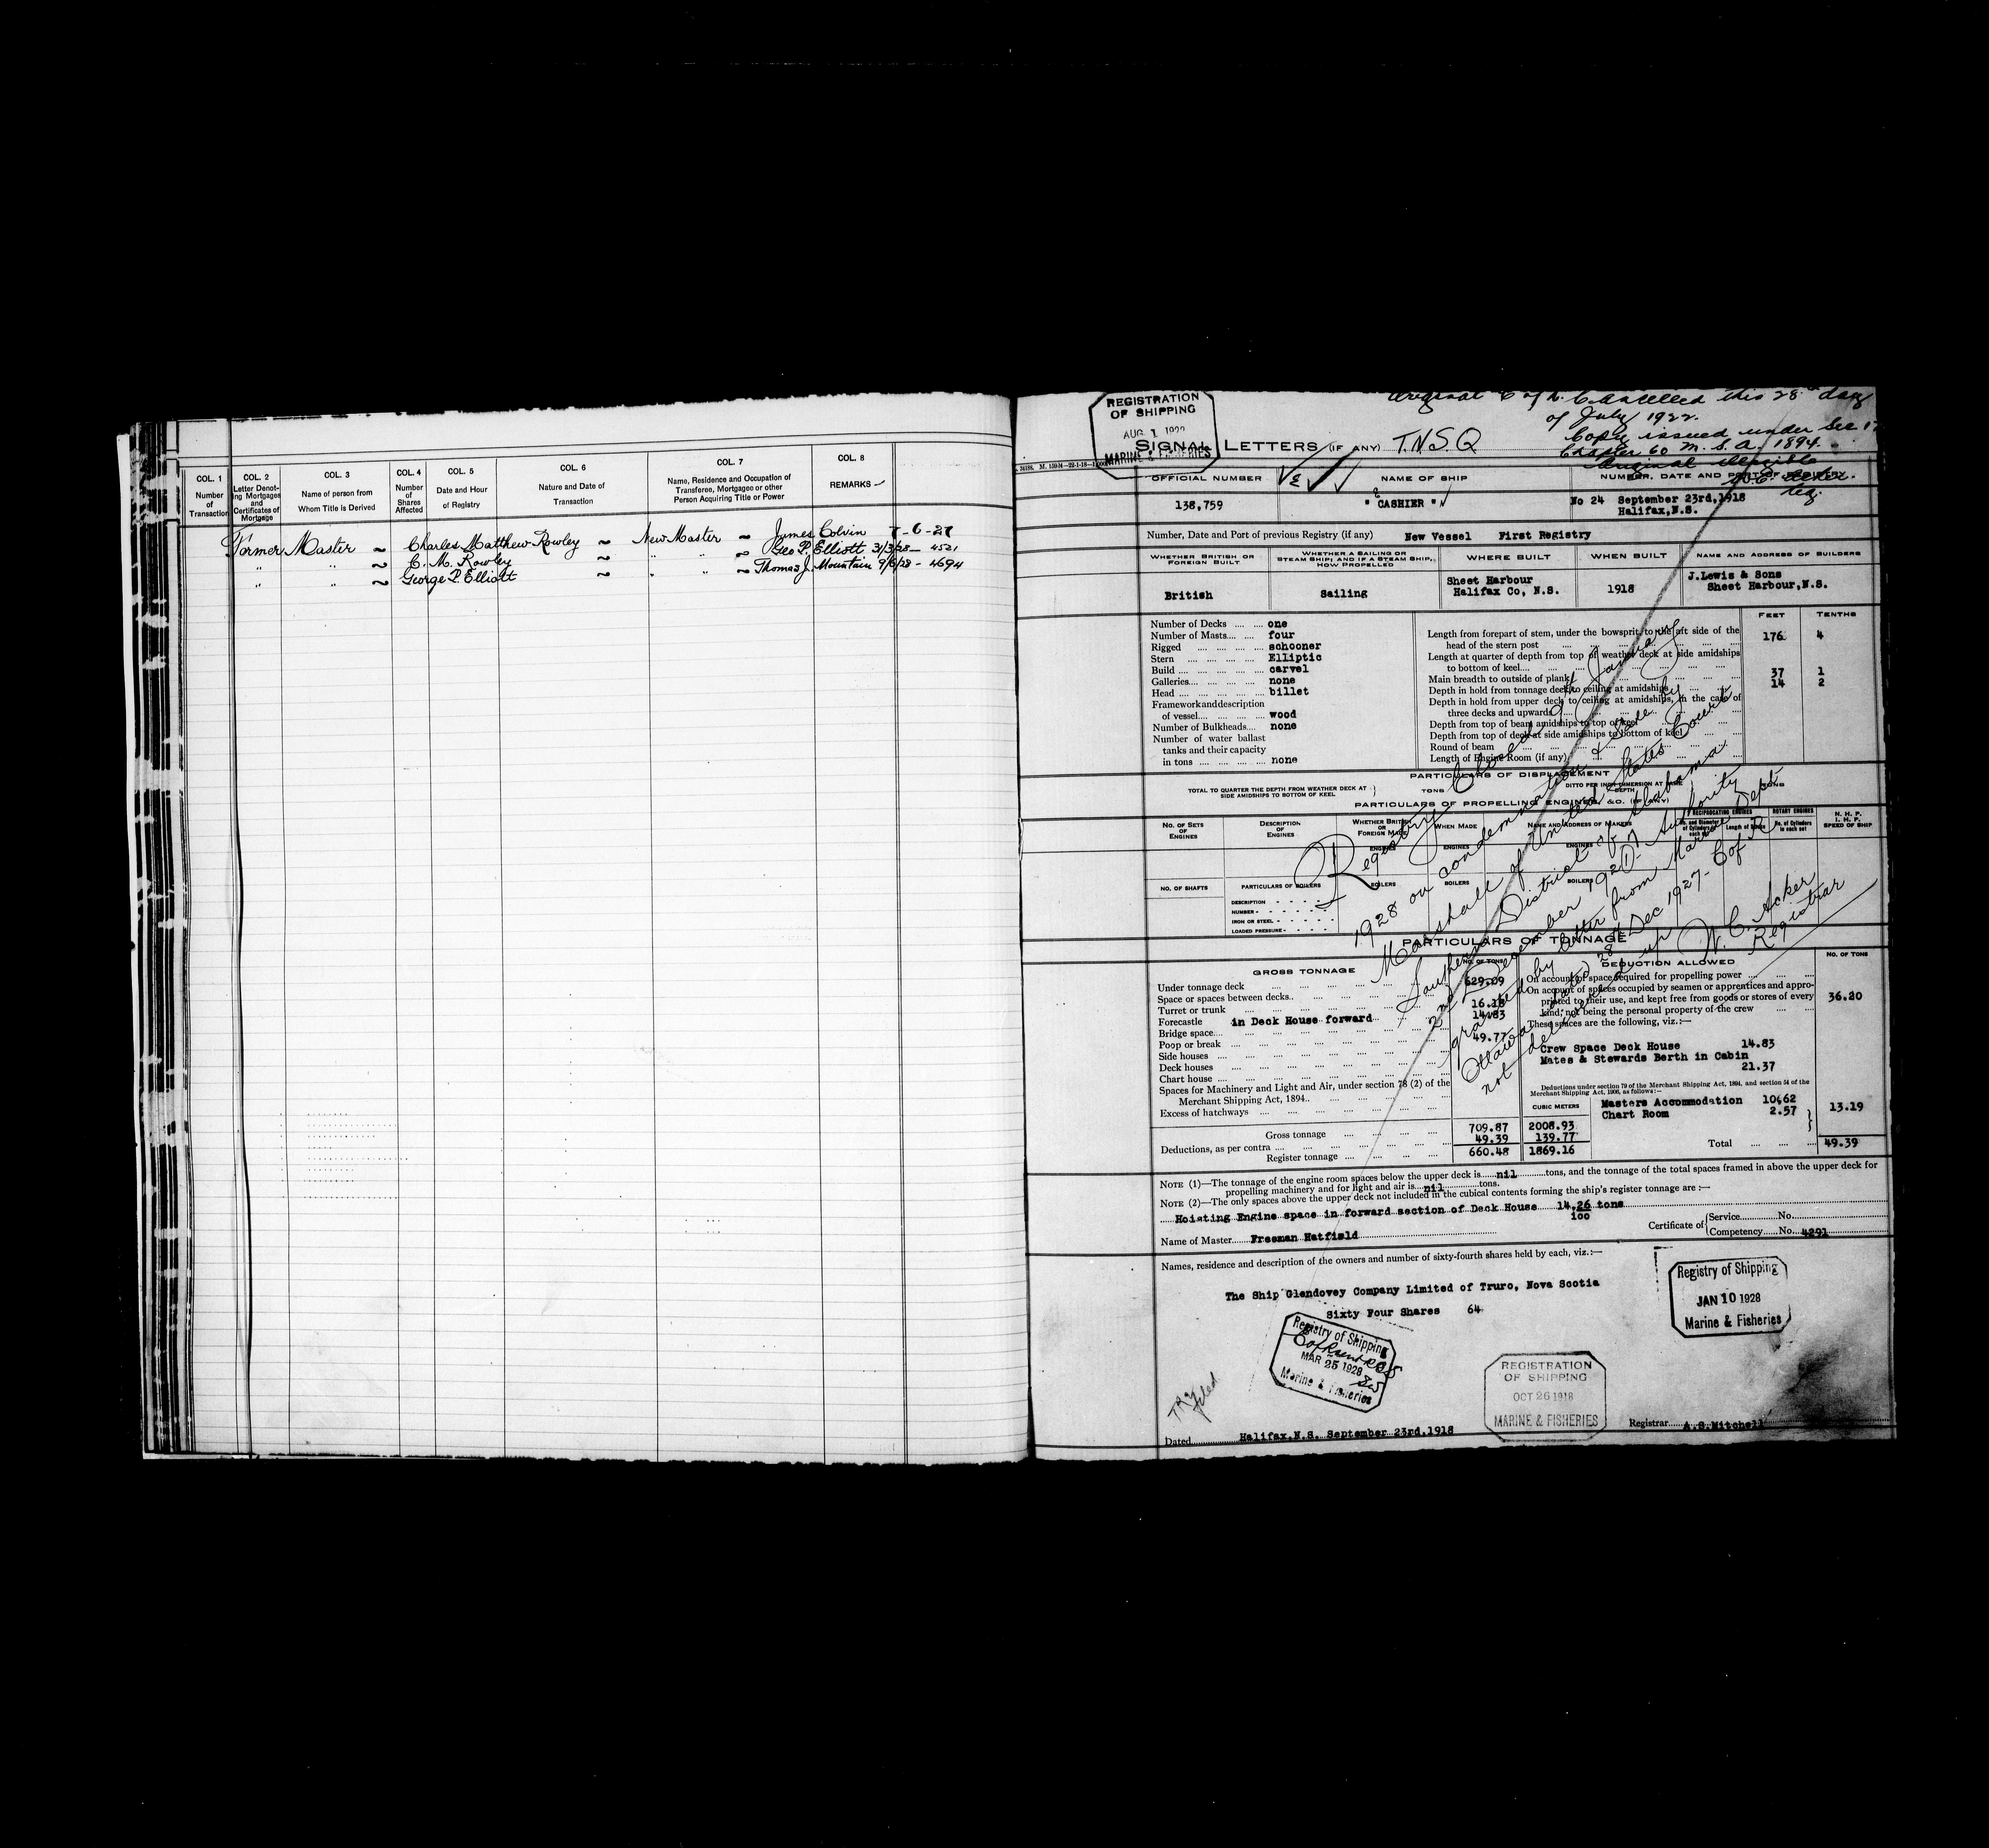 COL. 1
Number
of
Transaction
COL. 2
Letter Denot-
ing Mortgages
and
Certificates of
Mortgage
COL. 3
Name of person from
Whom Title is Derived
COL. 4
Number
of
Shares
Affected
COL. 5
Date and Hour
of Registry
COL. 6
Nature and Date of
Transaction
COL. 7
Name, Residence and Occupation of
Transferee, Mortgagee or other
Person Acquiring Title or Power
COL. 8
REMARKS
Former Master ~ Charles Matthew Rowley ~ New Master ~ James Colvin 7-6-27
" " ~ C. M. Rowley ~ " " ~ Geo P. Elliott 31/3/28 - 4521
" " ~ George P. Elliott ~ " " ~ Thomas J. Mountain 9/6/28 - 4694
Original C of R. Cancelled this 28th day
of July 1922.
Copy issued under Sec 17
Chapter 60 M. S. A. 1894.
Original illegible
W.C. Acker.
Reg.
REGISTRATION
OF SHIPPING
AUG 1 1922
MARINE & FISHERIES
SIGNAL LETTERS (IF ANY) T.N.S.Q
OFFICIAL NUMBER
NAME OF SHIP
NUMBER, DATE AND PORT OF REGISTRY
138,759
" CASHIER "
No 24 September 23rd,1918
Halifax,N.S.
Number, Date and Port of previous Registry (if any) New Vessel First Registry
WHETHER BRITISH OR
FOREIGN BUILT
WHETHER A SAILING OR
STEAM SHIP, AND IF A STEAM SHIP,
HOW PROPELLED
WHERE BUILT
WHEN BUILT
NAME AND ADDRESS OF BUILDERS
British
Sailing
Sheet Harbour
Halifax Co, N.S.
1918
J.Lewis & Sons
Sheet Harbour,N.S.
FEET TENTHS
Number of Decks one
Number of Masts four
Rigged schooner
Stern Elliptic
Build carvel
Galleries none
Head billet
Framework and description
of vessel wood
Number of Bulkheads none
Number of water ballast
tanks and their capacity
in tons none
Length from forepart of stem, under the bowsprit to the aft side of the
head of the stern post 176 4
Length at quarter of depth from top of weather deck at side amidships
to bottom of keel
Main breadth to outside of plank 37 1
Depth in hold from tonnage deck to ceiling at amidships 14 2
Depth in hold from upper deck to ceiling at amidships, in the case of
three decks and upwards
Depth from top of beam amidships to top of keel
Depth from top of deck at side amidships to bottom of keel
Round of beam
Length of Engine Room (if any)
PARTICULARS OF DISPLACEMENT
TOTAL TO QUARTER THE DEPTH FROM WEATHER DECK AT
SIDE AMIDSHIPS TO BOTTOM OF KEEL
TONS
DITTO PER INCH IMMERSION AT SAME
DEPTH
TONS
PARTICULARS OF PROPELLING ENGINES, &C. (IF ANY)
NO. OF SETS
OF
ENGINES
DESCRIPTION
OF
ENGINES
WHETHER BRITISH
OR
FOREIGN MADE
WHEN MADE
NAME AND ADDRESS OF MAKERS
RECIPROCATING ENGINES
No. and Diameter
of Cylinders in
each set
Length of Stroke
ROTARY ENGINES
No. of Cylinders
in each set
N. H. P.
I. H. P.
SPEED OF SHIP
ENGINES
ENGINES
ENGINES
NO. OF SHAFTS
PARTICULARS OF BOILERS
BOILERS
BOILERS
BOILERS
DESCRIPTION
NUMBER
IRON OR STEEL
LOADED PRESSURE
Registry Closed 9th January
1928 on condemnation & sale by
Marshall of United States Court
Southern District of Alabama
2nd December 1927. Authority
granted by letter from Marine Dept
Ottawa dated 28th Dec 1927 - C of R
not delivered up
W. C. Acker
Registrar
PARTICULARS OF TONNAGE
GROSS TONNAGE
NO. OF TONS
DEDUCTION ALLOWED
NO. OF TONS
Under tonnage deck 629.09
Space or spaces between decks
Turret or trunk 16.18
Forecastle in Deck House forward 14.83
Bridge space
Poop or break 49.77
Side houses
Deck houses
Chart house
Spaces for Machinery and Light and Air, under section 78 (2) of the
Merchant Shipping Act, 1894
Excess of hatchways
Gross tonnage 709.87 2008.93
Deductions, as per contra 49.39 139.77
Register tonnage 660.48 1869.16
CUBIC METERS
On account of space required for propelling power
On account of spaces occupied by seamen or apprentices and appro-
priated to their use, and kept free from goods or stores of every
kind, not being the personal property of the crew 36.20
These spaces are the following, viz.:—
Crew Space Deck House 14.83
Mates & Stewards Berth in Cabin
21.37
Deductions under section 79 of the Merchant Shipping Act, 1894, and section 54 of the
Merchant Shipping Act, 1906, as follows:—
Masters Accommodation 10.62
Chart Room 2.57
13.19
Total 49.39
NOTE (1)—The tonnage of the engine room spaces below the upper deck is nil tons, and the tonnage of the total spaces framed in above the upper deck for
propelling machinery and for light and air is nil tons.
NOTE (2)—The only spaces above the upper deck not included in the cubical contents forming the ship's register tonnage are :—
Hoisting Engine space in forward section of Deck House 14.26 tons
100
Name of Master Freeman Hatfield
Certificate of
Service No.
Competency No. 4291
Names, residence and description of the owners and number of sixty-fourth shares held by each, viz.:—
The Ship Glendovey Company Limited of Truro, Nova Scotia
Sixty Four Shares 64
Registry of Shipping
JAN 10 1928
Marine & Fisheries
Registry of Shipping
MAR 25 1928
Marine & Fisheries
REGISTRATION
OF SHIPPING
OCT 26 1918
MARINE & FISHERIES
filed
Dated Halifax,N.S. September 23rd,1918
Registrar A.S.Mitchell